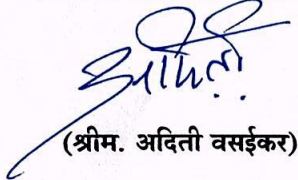 अदिती
(श्रीम. अदिती वसईकर)